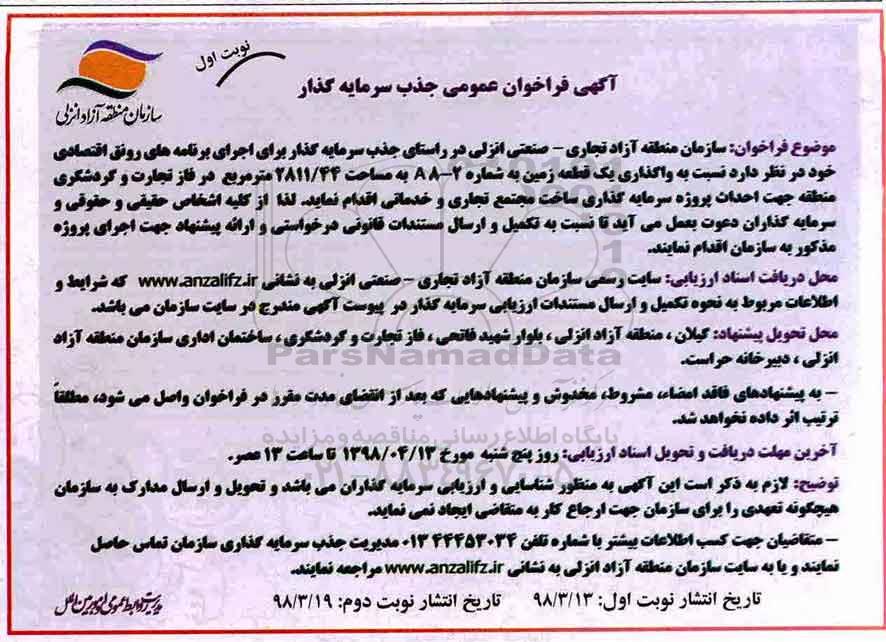 نوبت اول
سازمان منطقه آزاد انزلی
آگهی فراخوان عمومی جذب سرمایه گذار
موضوع فراخوان: سازمان منطقه آزاد تجاری – صنعتی انزلی در راستای جذب سرمایه گذار برای اجرای برنامه های رونق اقتصادی
خود در نظر دارد نسبت به واگذاری یک قطعه زمین به شماره A ۸–۲ به مساحت ۲۸۱۱/۴۴ مترمربع در فاز تجارت و گردشگری
منطقه جهت احداث پروژه سرمایه گذاری ساخت مجتمع تجاری و خدماتی اقدام نماید. لذا از کلیه اشخاص حقیقی و حقوقی و
سرمایه گذاران دعوت بعمل می آید تا نسبت به تکمیل و ارسال مستندات قانونی درخواستی و ارائه پیشنهاد جهت اجرای پروژه
مذکور به سازمان اقدام نمایند.
محل دریافت اسناد ارزیابی: سایت رسمی سازمان منطقه آزاد تجاری – صنعتی انزلی به نشانی www.anzalifz.ir که شرایط و
اطلاعات مربوط به نحوه تکمیل و ارسال مستندات ارزیابی سرمایه گذار در پیوست آگهی مندرج در سایت سازمان می باشد.
محل تحویل پیشنهاد: گیلان ، منطقه آزاد انزلی ، بلوار شهید فاتحی ، فاز تجارت و گردشگری ، ساختمان اداری سازمان منطقه آزاد
انزلی ، دبیرخانه حراست.
ParsNamadData
– به پیشنهادهای فاقد امضاء، مشروط، مخدوش و پیشنهادهایی که بعد از انقضای مدت مقرر در فراخوان واصل می شود، مطلقاً
ترتیب اثر داده نخواهد شد.
پایگاه اطلاع رسانی مناقصه و مزایده
آخرین مهلت دریافت و تحویل اسناد ارزیابی: روز پنج شنبه مورخ ۱۳۹۸/۰۴/۱۳ تا ساعت ۱۳ عصر.
۰۲۱-۸۸۳۴۹۶۷۰-۵
توضیح: لازم به ذکر است این آگهی به منظور شناسایی و ارزیابی سرمایه گذاران می باشد و تحویل و ارسال مدارک به سازمان
هیچگونه تعهدی را برای سازمان جهت ارجاع کار به متقاضی ایجاد نمی نماید.
– متقاضیان جهت کسب اطلاعات بیشتر با شماره تلفن ۰۱۳۴۴۴۵۳۰۳۴ مدیریت جذب سرمایه گذاری سازمان تماس حاصل
نمایند و یا به سایت سازمان منطقه آزاد انزلی به نشانی www.anzalifz.ir مراجعه نمایند.
تاریخ انتشار نوبت اول: ۹۸/۳/۱۳ تاریخ انتشار نوبت دوم: ۹۸/۳/۱۹
مدیریت روابط عمومی و امور بین الملل